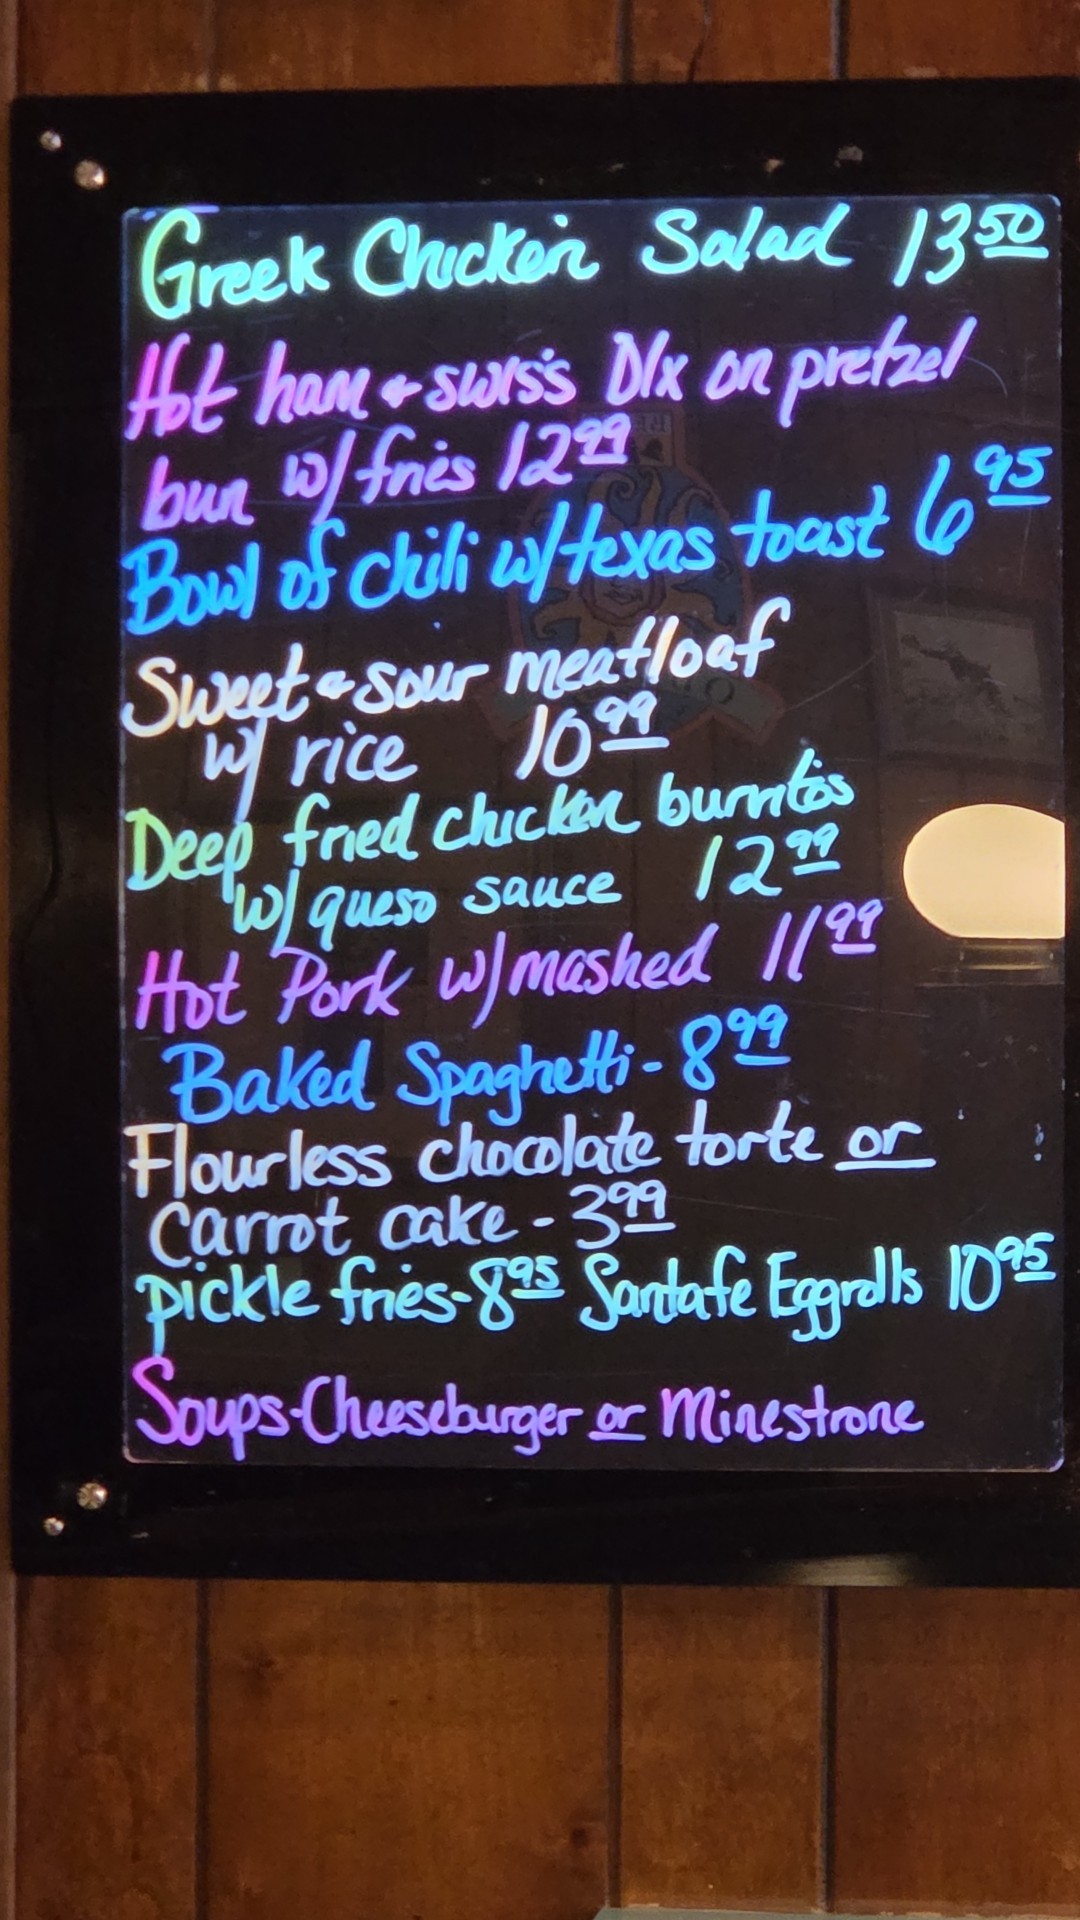 Greek Chicken Salad 13 50
Hot ham & swiss Dlx on pretzel
bun w/ fries 12 99
Bowl of chili w/ texas toast 6 95
Sweet & sour meatloaf
w/ rice 10 99
Deep fried chicken burritos
w/ queso sauce 12 99
Hot Pork w/ mashed 11 99
Baked Spaghetti - 8 99
Flourless chocolate torte or
Carrot cake - 3 99
pickle fries - 8 95 Santafe Eggrolls 10 95
Soups - Cheeseburger or Minestrone